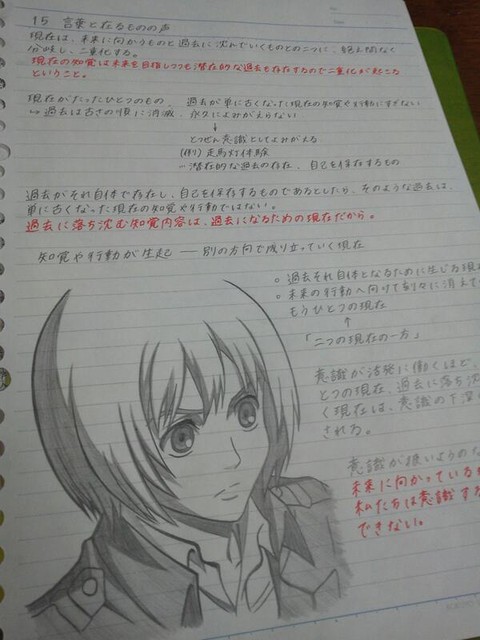 15 言葉と在るものの声
現在は、未来に向かうものと過去に沈んでいくものとの二つに、絶え間なく
分岐し、二重化する。
現在の知覚は未来を目指しつつも潜在的な過去も存在するので二重化が起こる
ということ。
現在がたったひとつのもの、過去が単に古くなった現在の知覚や行動にすぎない
⇒過去は古さの順に消滅、永久によみがえらない
↓
とつぜん意識としてよみがえる
(例) 走馬灯体験
…潜在的な過去の存在、自己を保存するもの
過去がそれ自体で存在し、自己を保存するものであるとしたら、そのような過去は、
単に古くなった現在の知覚や行動ではない。
過去に落ち沈む知覚内容は、過去になるための現在だから。
知覚や行動が生起 ── 別の方向で成り立っていく現在
○ 過去それ自体となるために生じる現在
○ 未来の行動へ向けて刻々に消えて
もうひとつの現在
↑
「二つの現在の一方」
意識が活発に働くほど、
とつの現在、過去に落ち沈
く現在は、意識の下深
される。
意識が扱いようのな
未来に向かっている
私たちは意識する
できない。